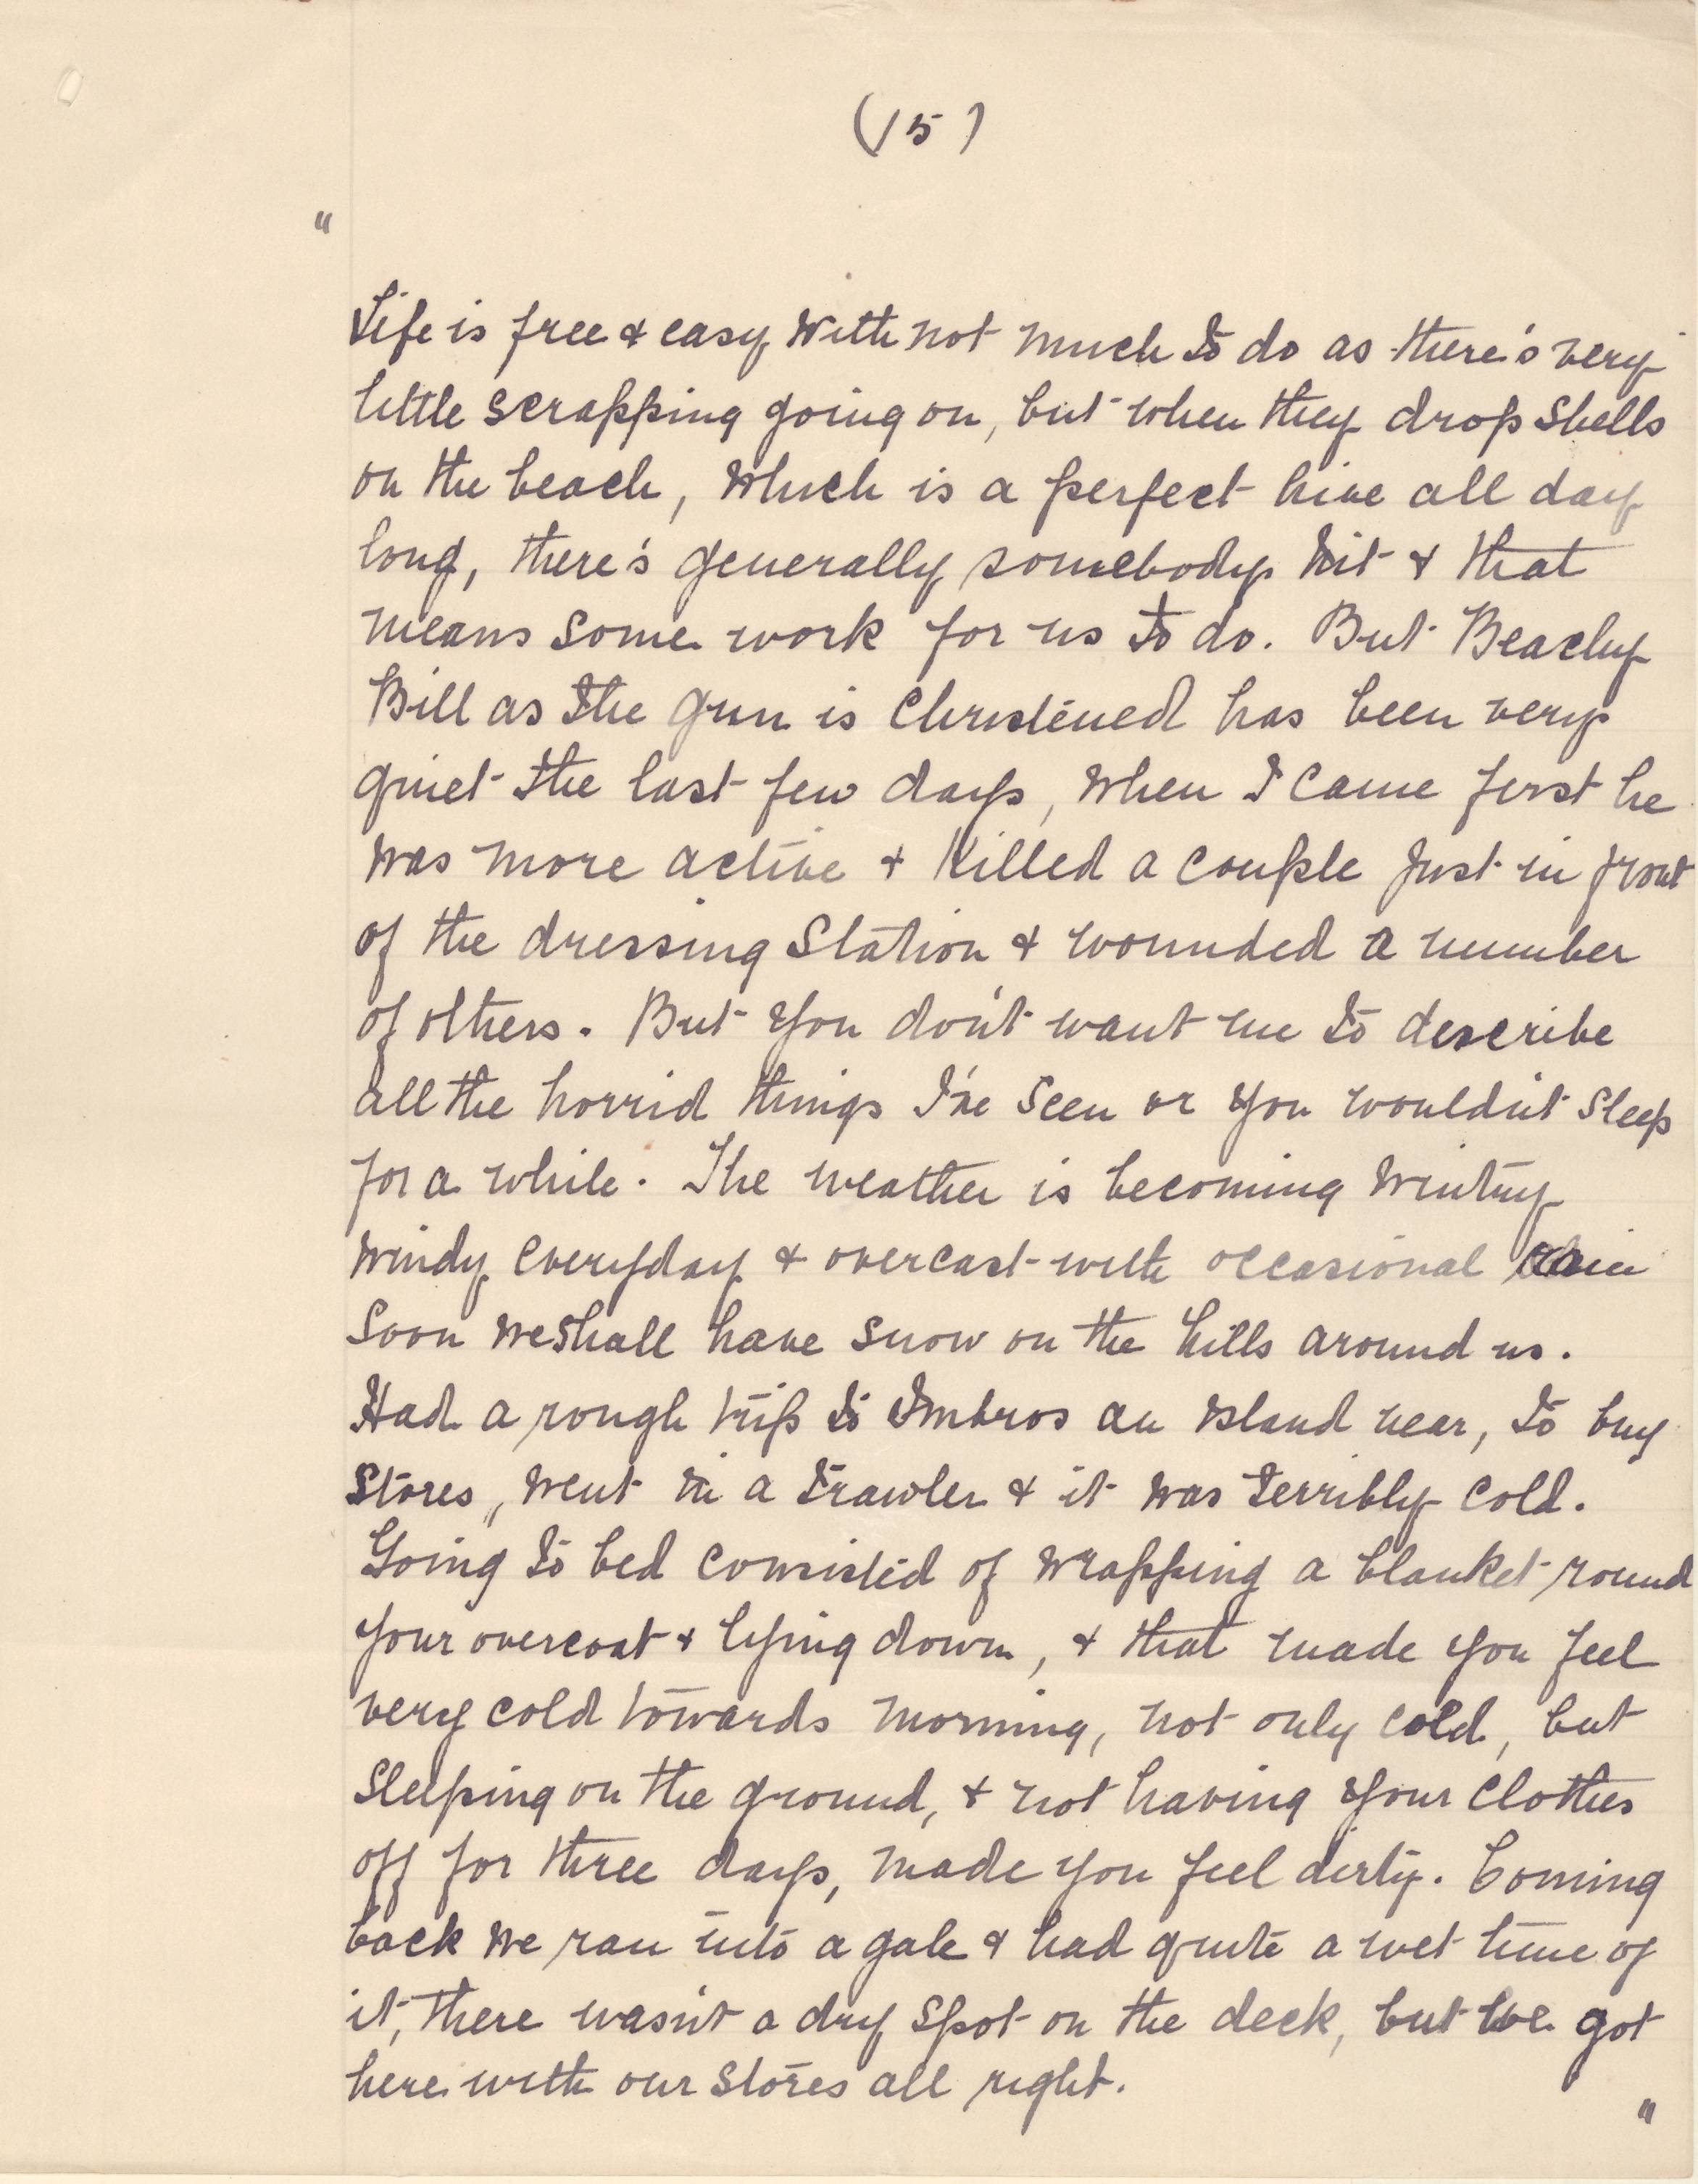 (15)
"
Life is free & easy with not much to do as there's very
little scrapping going on, but when they drop shells
on the beach, which is a perfect hive all day
long, there's generally somebody hit & that
means some work for us to do. But Beachy
Bill as the gun is christened has been very
quiet the last few days, when I came first he
was more active & killed a couple just in front
of the dressing station & wounded a number
of others. But you don't want me to describe
all the horrid things I've seen or you wouldn't sleep
for a while. The weather is becoming wintry
windy everyday & overcast with occasional rain
Soon we shall have snow on the hills around us.
Had a rough trip to Imbros an island near, to buy
stores, went in a trawler & it was terribly cold.
Going to bed consisted of wrapping a blanket round
your overcoat & lying down, & that made you feel
very cold towards morning, not only cold, but
sleeping on the ground, & not having your clothes
off for three days, made you feel dirty. Coming
back we ran into a gale & had quite a wet time of
it, there wasn't a dry spot on the deck, but we got
here with our stores all right.
"